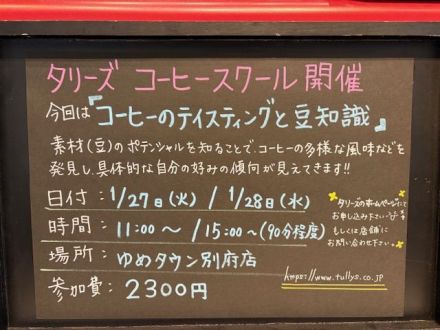 タリーズ コーヒースクール開催
今回は『コーヒーのテイスティングと豆知識』
素材(豆)のポテンシャルを知ることで、コーヒーの多様な風味などを
発見し、具体的な自分の好みの傾向が見えてきます!!
日付:1/27日(火) / 1/28日(水)
時間:11:00~ / 15:00~(90分程度)
場所:ゆめタウン別府店
参加費:2300円
タリーズのホームページにて
お申し込み下さい
もしくは店舗に
お問い合わせ下さい。
https://www.tullys.co.jp